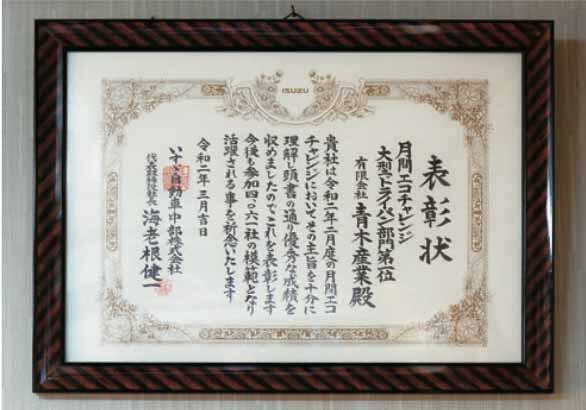 ISUZU
表彰状
月間エコチャレンジ
大型ドライバン部門第一位
有限会社 青木産業殿
貴社は令和二年二月度の月間エコ
チャレンジにおいてその主旨を十分に
理解し頭書の通り優秀な成績を
収めましたのでこれを表彰します
今後も参加四〇六二社の模範となり
活躍される事を祈念いたします
令和二年三月吉日
いすゞ自動車中部株式会社
代表取締役社長 海老根健一